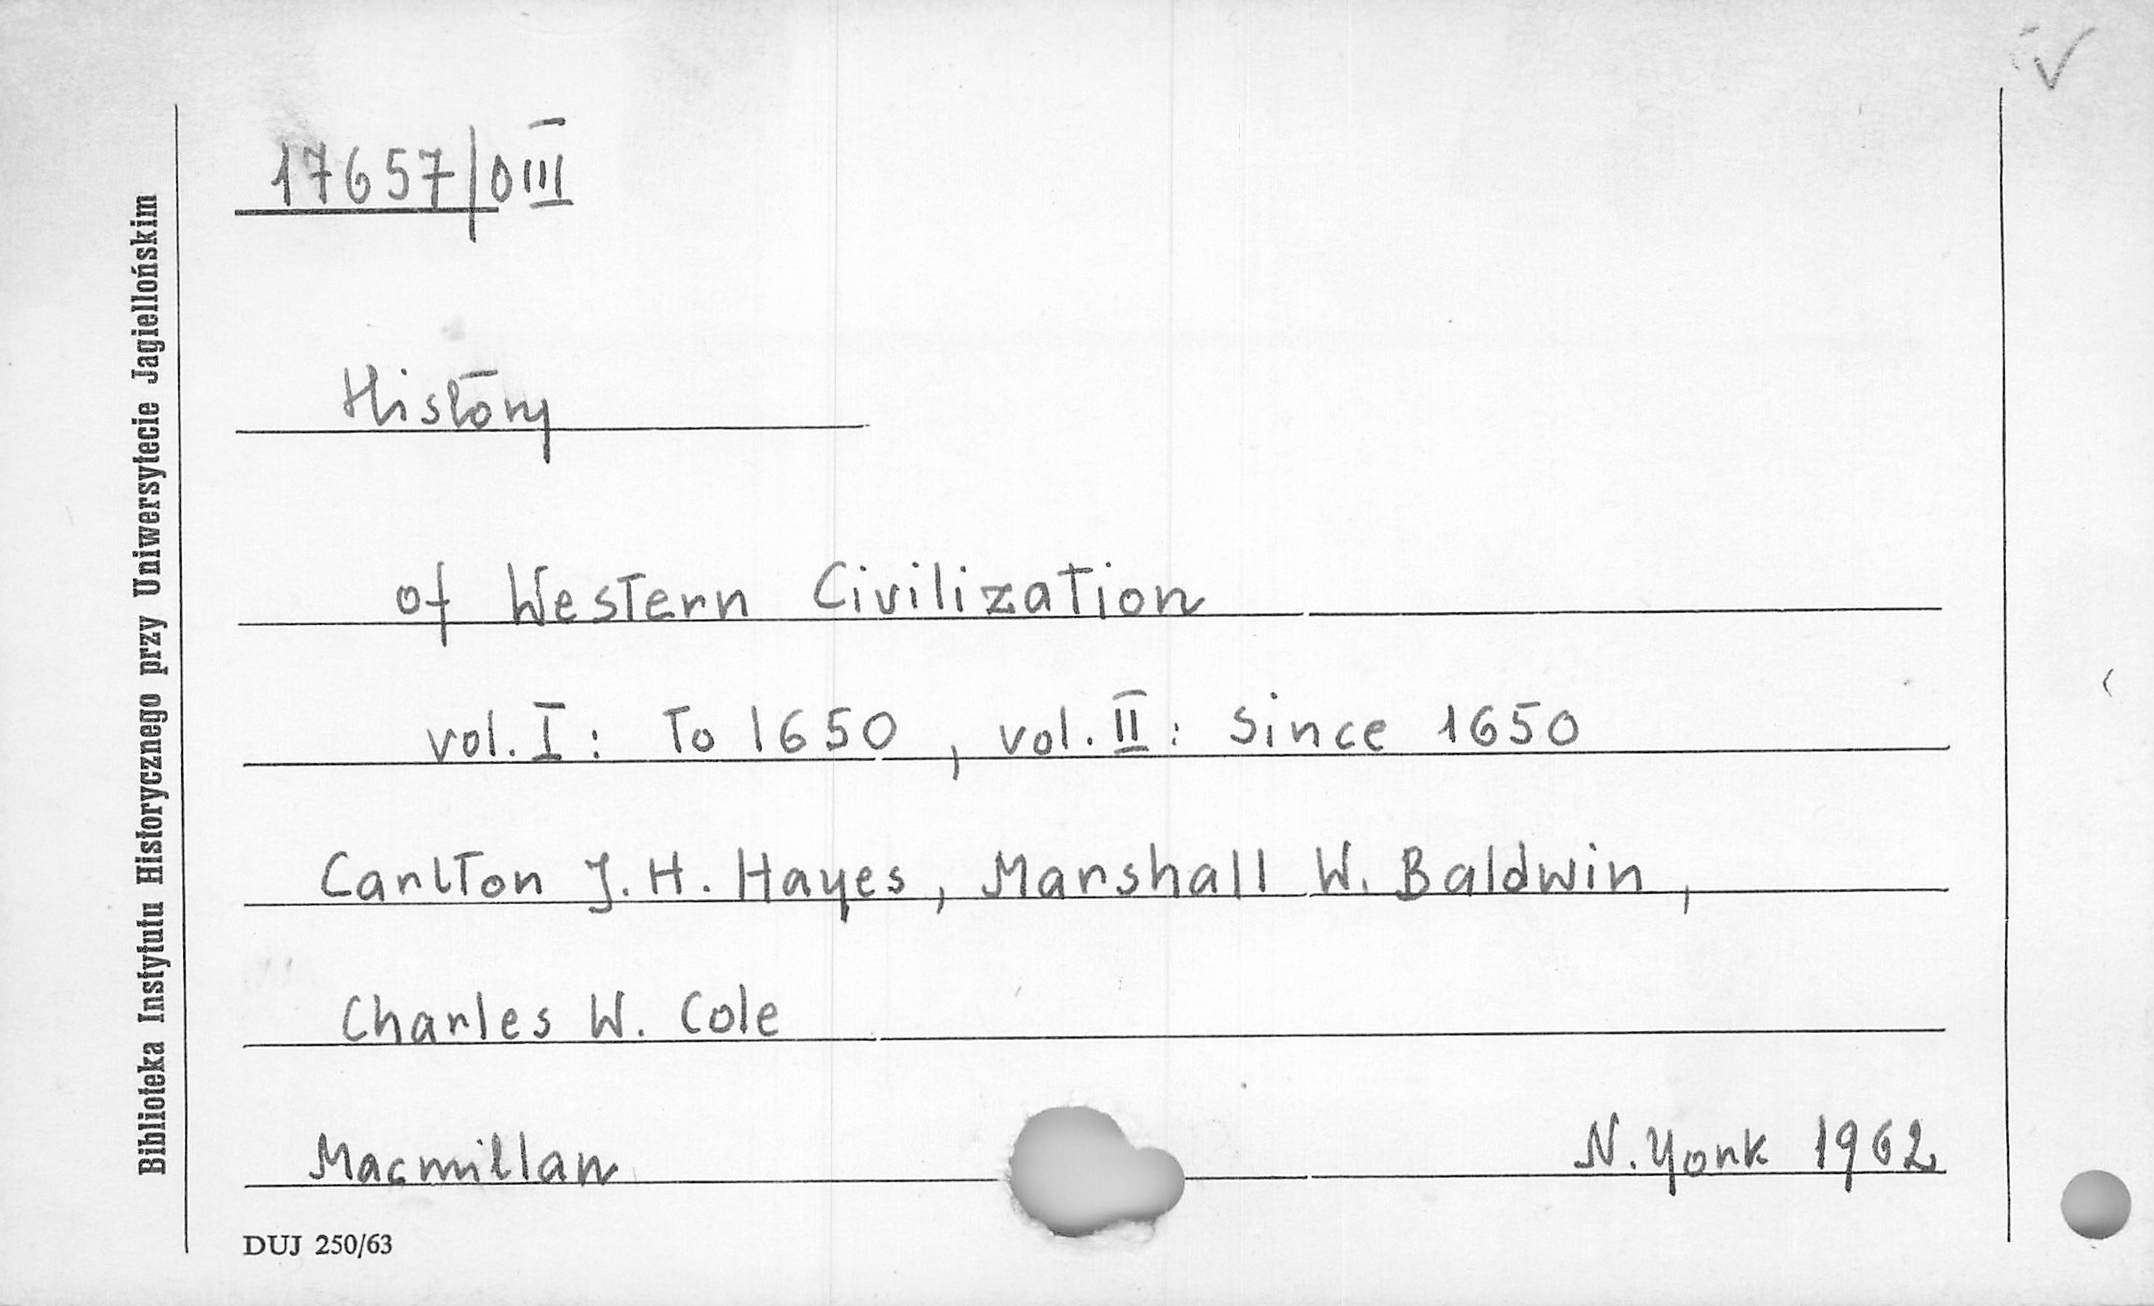 17657/OIII
History
of Western Civilization
vol. I: To 1650, vol. II: Since 1650
Carlton J. H. Hayes, Marshall W. Baldwin,
Charles W. Cole
Macmillan N. York 1962
DUJ 250/63
Biblioteka Instytutu Historycznego przy Uniwersytecie Jagiellońskim